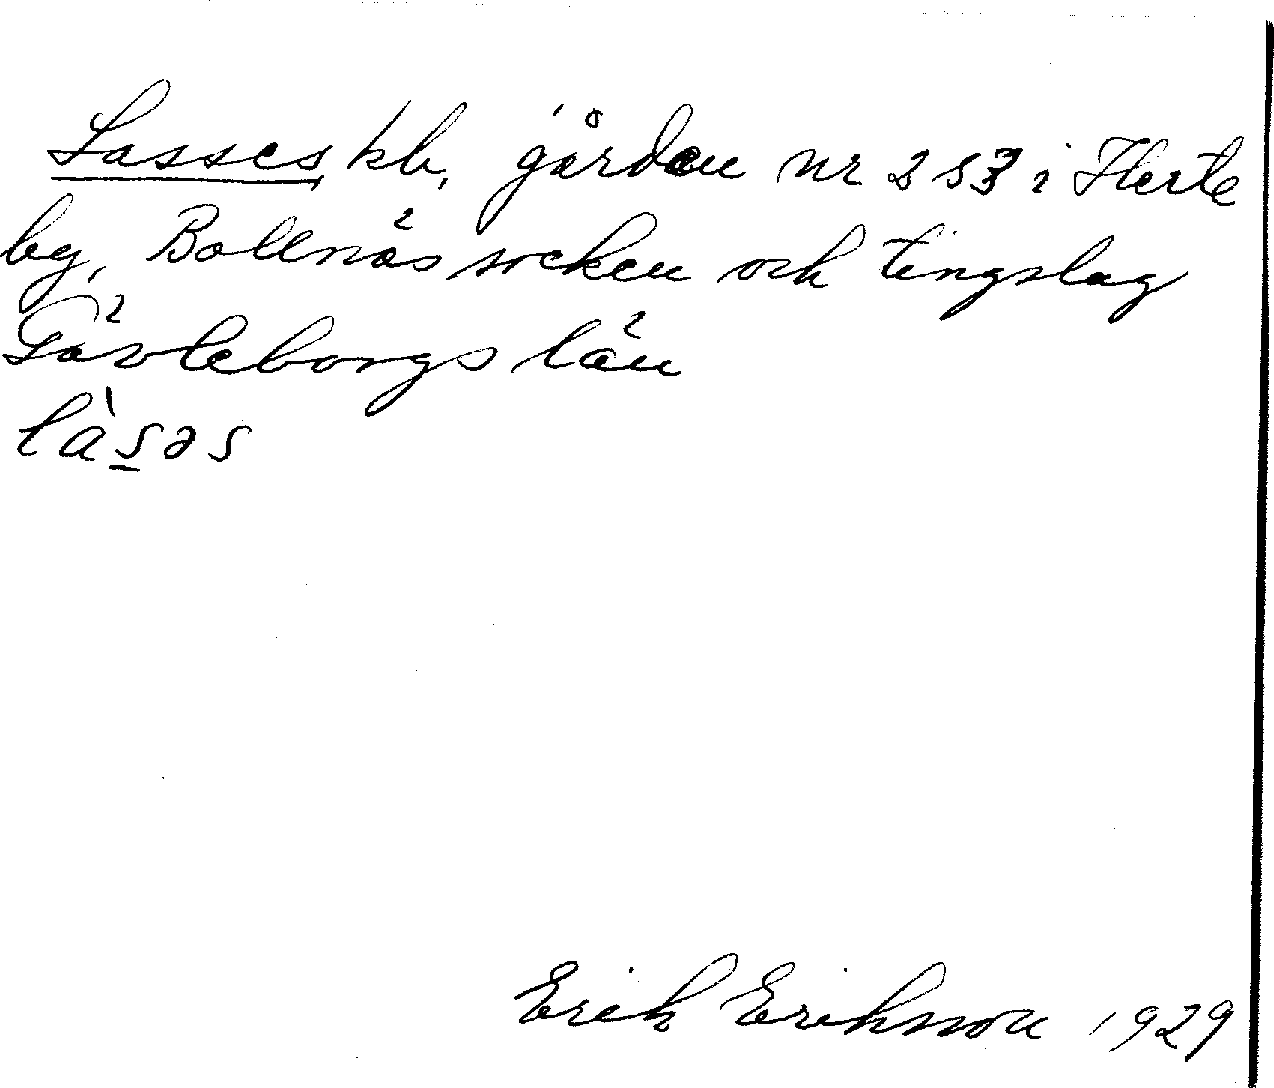 Lasses, kb, gården nr 2 S3 i Herte
by, Bollnäs socken och tingslag
Gävleborgs län
làs̲əs
Erik Erikson 1929